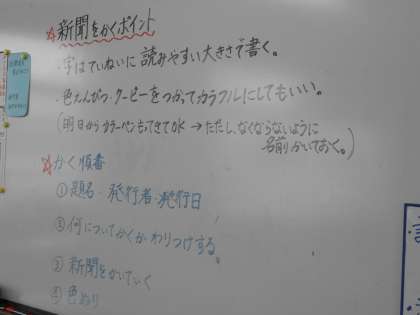 新聞をかくポイント
・字はていねいに読みやすい大きさで書く。
・色えんぴつ・クーピーをつかってカラフルにしてもいい。
(明日からカラーペンもってきてOK → ただし、なくならないように
名前かいておく。)
かく順番
①題名・発行者・発行日
②何についてかくか、わりつけする。
③新聞をかいていく
④色ぬり